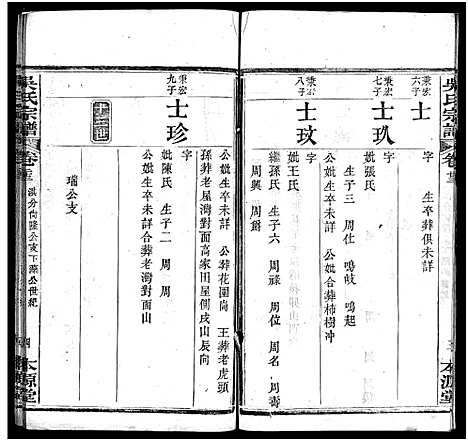 吳氏宗譜
卷
本源堂
秉宏六子
士
生卒葬俱未詳
秉宏七子
士玖
妣張氏 生子三 周仕 鳴岐 鳴起
公妣生卒未詳合葬柿樹冲
秉宏八子
士玫
妣王氏
繼孫氏 生子六 周祿 周位 周名 周壽
周興 周爵
公妣生卒未詳 公葬花園向 王葬老虎頭
孫葬老屋灣對面高家田屋側戌山辰向
秉宏九子
士珍
妣陳氏 生子二 周 周
公妣生卒未詳合葬老灣對面山
十二世
瑞公支
吳氏宗譜
卷
洪分尚隆公支下 公世紀
本源堂